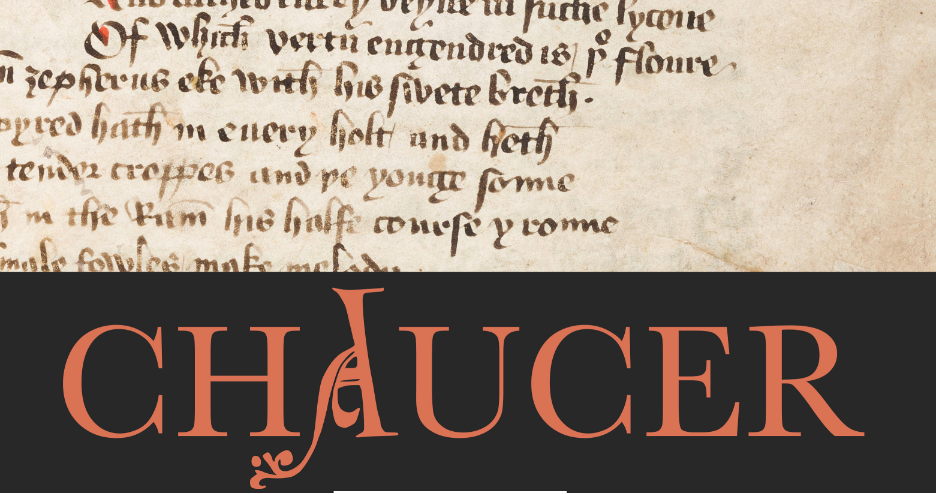 And bathed euery veyne in suche lycour
Of which vertu engendred is / þe floure
zepherus eke with his swete breth.
spyred hath in euery holt and heth
tender croppes and þe yonge sonne
in the Ram his halfe courſe y ronne
smale fowles make melody
CHAUCER